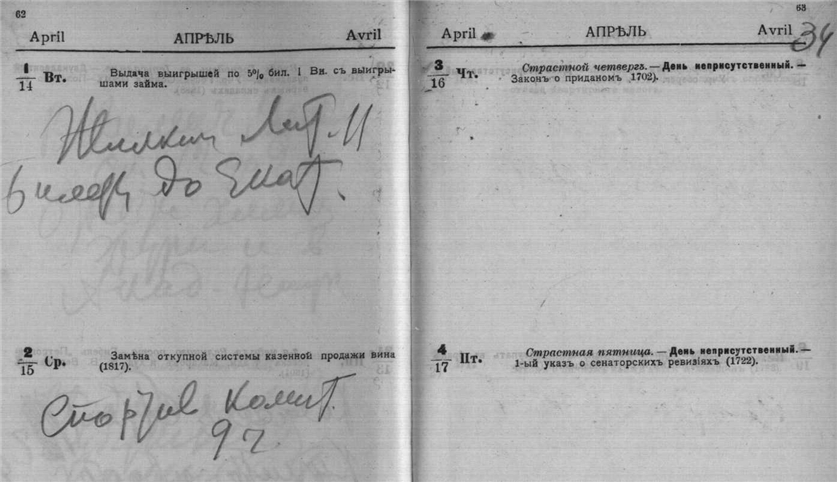 62
April АПРѢЛЬ Avril
1/14 Вт. Выдача выигрышей по 5% бил. I Вн. съ выигры-
шами займа.
Жилкин Лит. 11
Билет до Екат.
2/15 Ср. Замѣна откупной системы казенной продажи вина
(1817).
Спортив комит.
9 ч.
63
April АПРѢЛЬ Avril 34
3/16 Чт. Страстной четвергъ. — День неприсутственный. —
Законъ о приданомъ 1702).
4/17 Пт. Страстная пятница. — День неприсутственный. —
1-ый указъ о сенаторскихъ ревизіяхъ (1722).